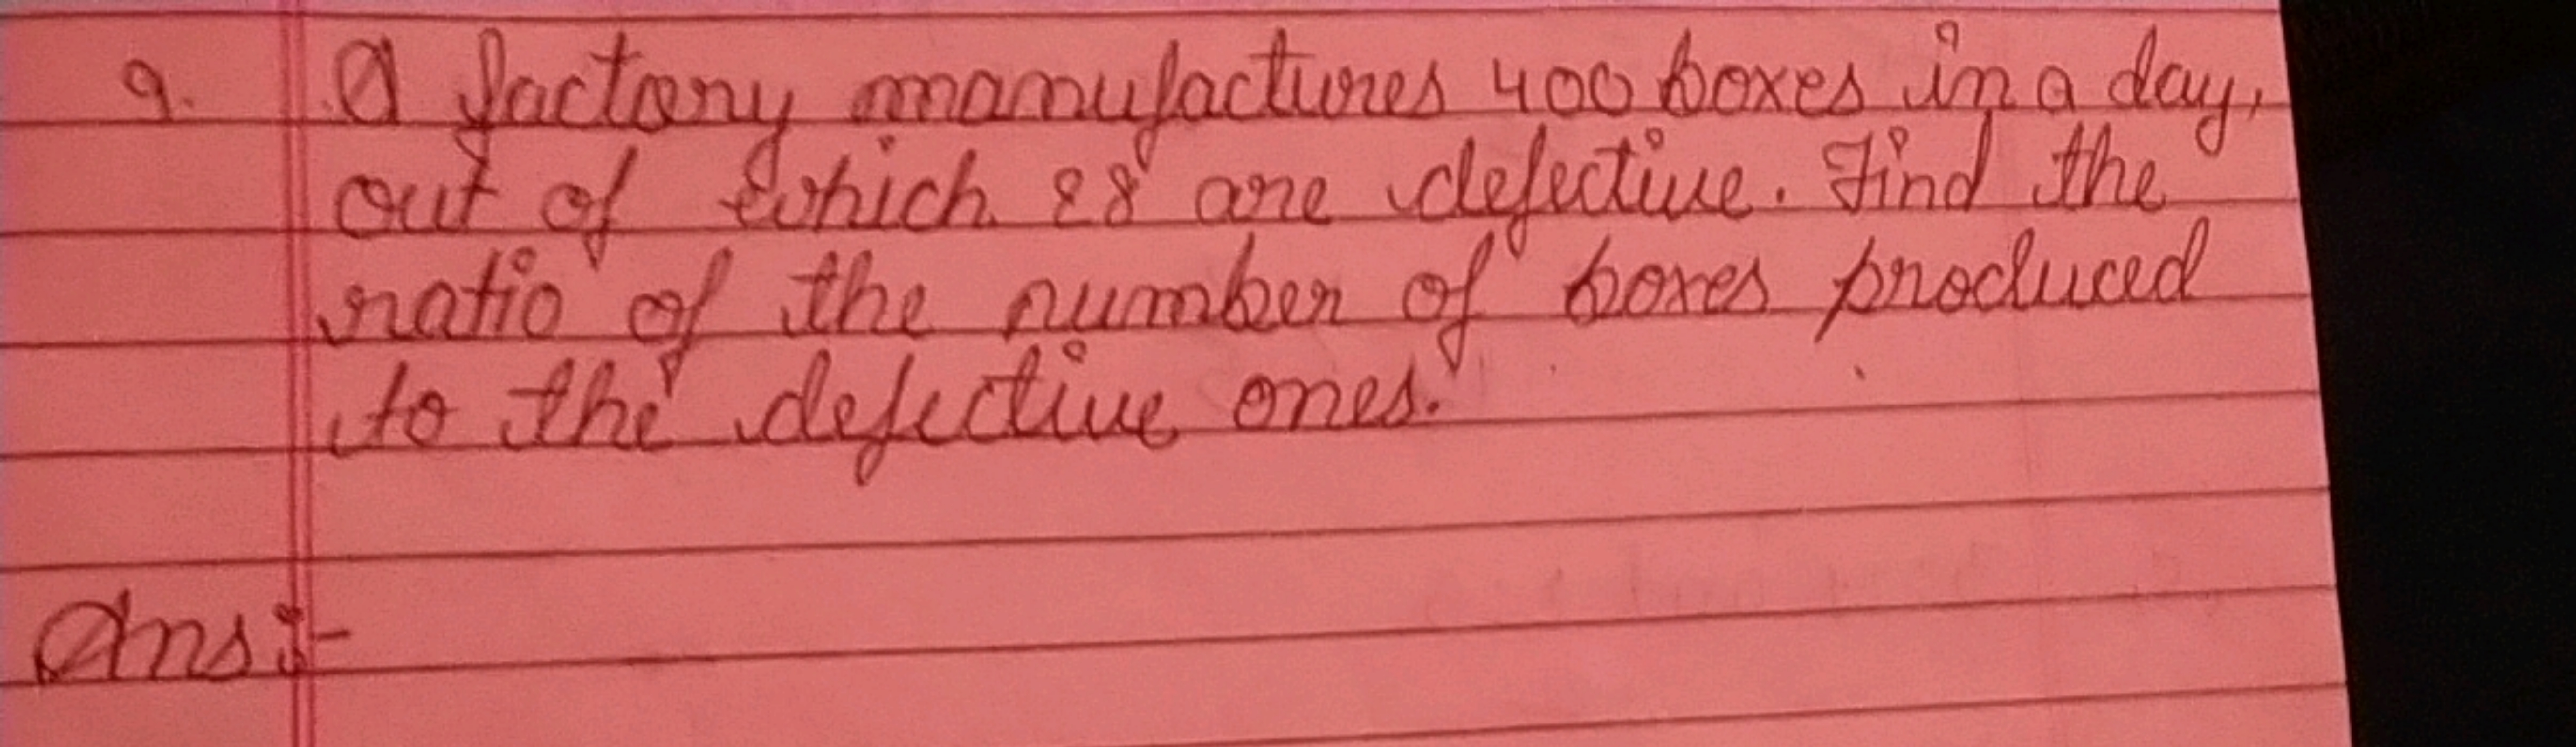 9. A factory manufactures 400 boxes in a day,
out of which 28 are defective. Find the
ratio of the number of boxes produced
to the defective ones.
Ans:-